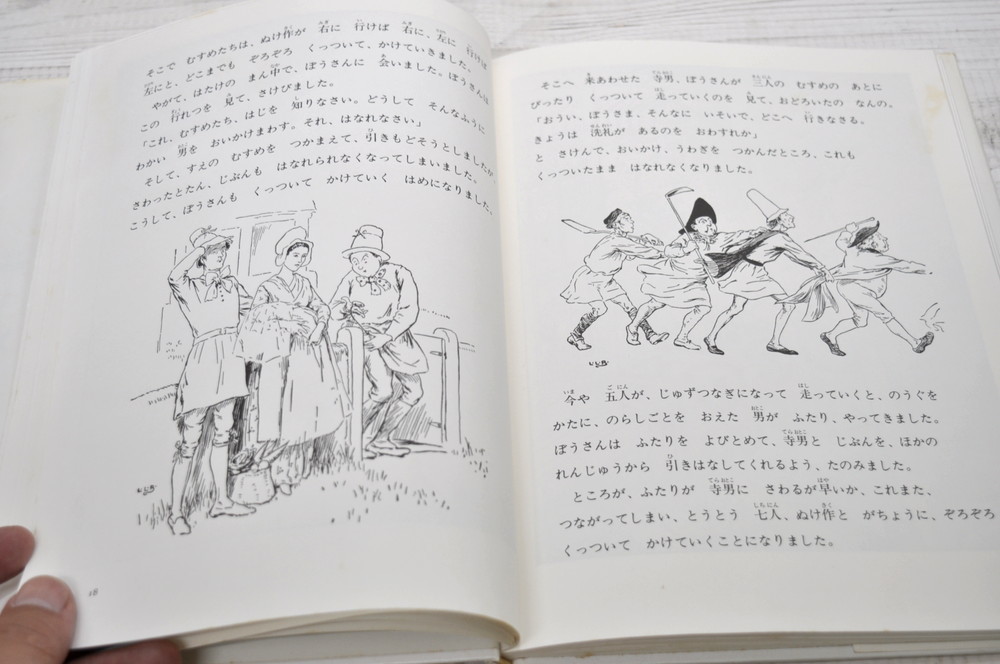 そこで むすめたちは、ぬけ作が 右に 行けば 右に、左に 行けば
左にと、どこまでも ぞろぞろ くっついて、かけていきました。
やがて、はたけの まん中で、ぼうさんに 会いました。ぼうさんは
この 行れつを 見て、さけびました。
「これ、むすめたち、はじを 知りなさい。どうして そんなふうに
わかい 男を おいかけまわす。それ、はなれなさい」
そして、すえの むすめを つかまえて、引きもどそうとしましたが、
さわったとたん、じぶんも はなれられなくなってしまいました。
こうして、ぼうさんも くっついて かけていく はめになりました。
16
そこへ 来あわせた 寺男、ぼうさんが 三人の むすめの あとに
ぴったり くっついて 走っていくのを 見て、おどろいたの なんの。
「おうい、ぼうさま、そんなに いそいで、どこへ 行きなさる。
きょうは 洗礼が あるのを おわすれか」
と さけんで、おいかけ、うわぎを つかんだところ、これも
くっついたまま はなれなくなりました。
今や 五人が、じゅずつなぎになって 走っていくと、のうぐを
かたに、のらしごとを おえた 男が ふたり、やってきました。
ぼうさんは ふたりを よびとめて、寺男と じぶんを、ほかの
れんじゅうから 引きはなしてくれるよう、たのみました。
ところが、ふたりが 寺男に さわるが早いか、これまた、
つながってしまい、とうとう 七人、ぬけ作と がちょうに、ぞろぞろ
くっついて かけていくことになりました。